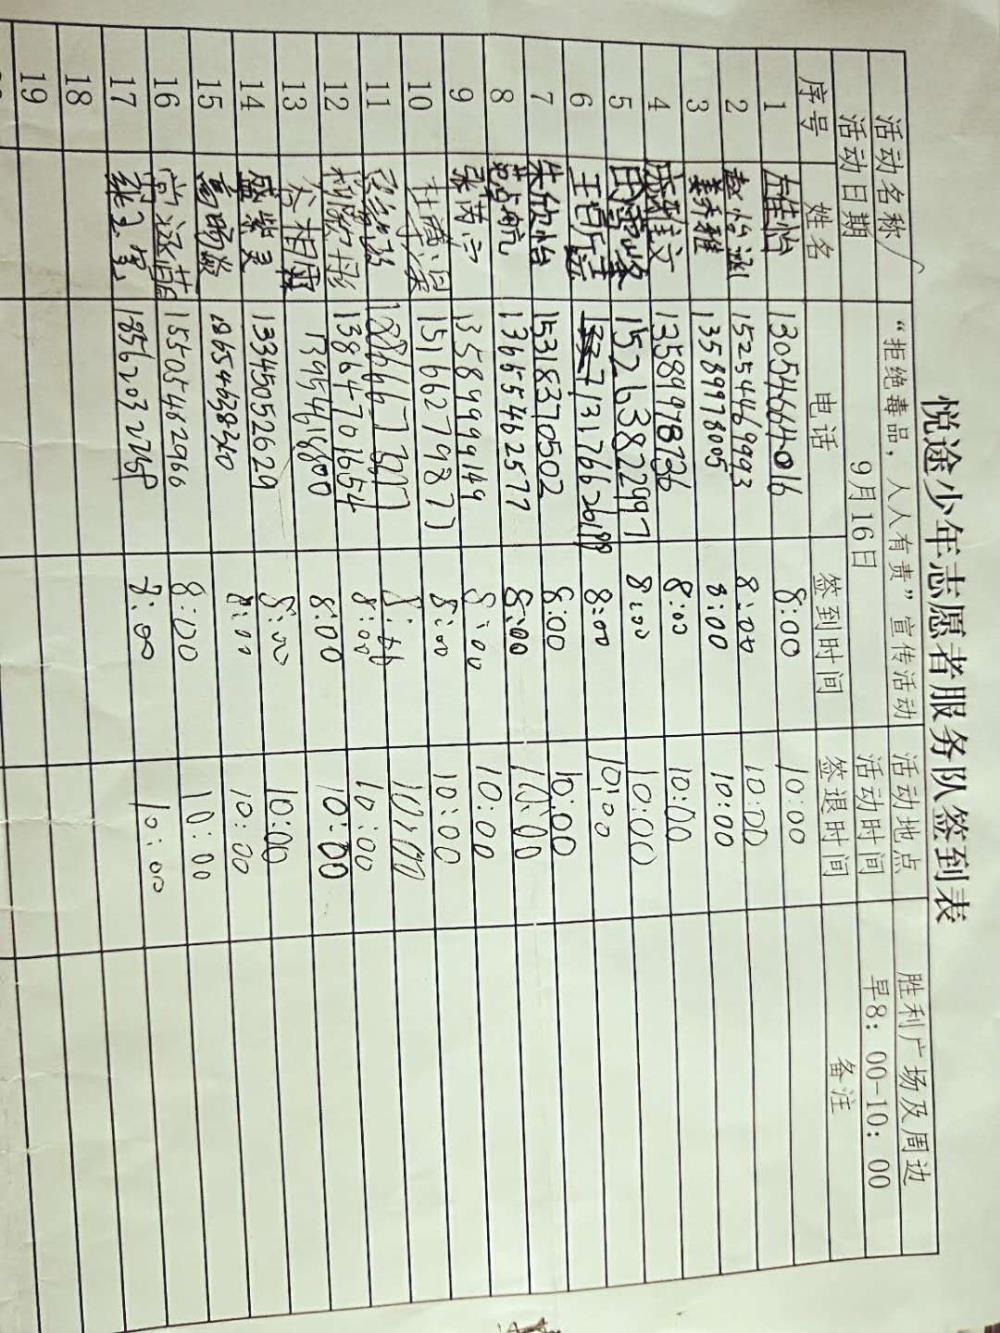 悦途少年志愿者服务队签到表
活动名称 “拒绝毒品，人人有责”宣传活动 活动地点 胜利广场及周边
活动日期 9月16日 活动时间 早8：00-10：00
序号 姓名 电话 签到时间 签退时间 备注
1 左佳怡 13054664016 8:00 10:00
2 赵怡涵 15254469993 8:00 10:00
3 秦梓雅 13589978005 8:00 10:00
4 13589978736 8:00 10:00
5 15263822997 8:00 10:00
6 8:00 10:00
7 朱欣怡 15318370502 8:00 10:00
8 13655462577 8:00 10:00
9 张芮宁 13589999149 8:00 10:00
10 15166279787 8:00 10:00
11 8:00 10:00
12 13864701654 8:00 10:00
13 13954618800 8:00 10:00
14 盛紫灵 13345052629 8:00 10:00
15 8:00 10:00
16 15505462966 8:00 10:00
17 8:00 10:00
18
19